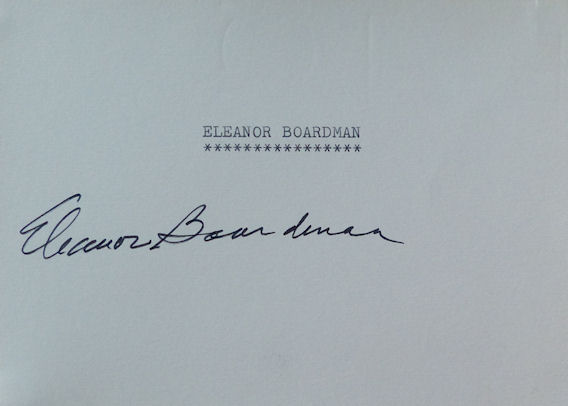 ELEANOR BOARDMAN
****************
Eleanor Boardman